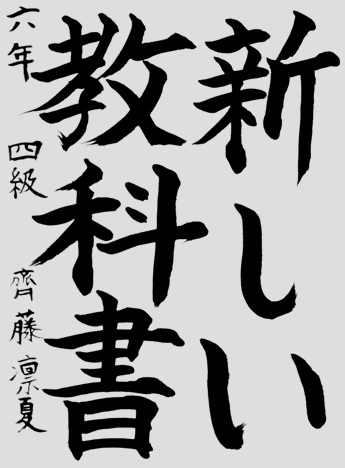 新しい
教科書
六年 四級 齊藤凛夏